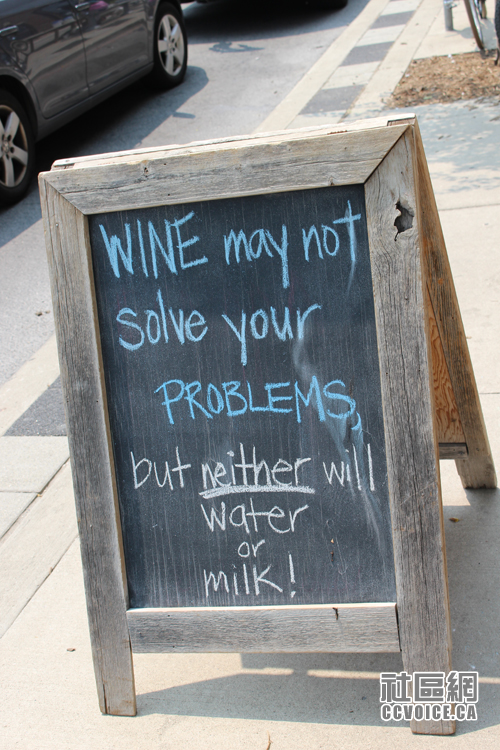 WINE may not
solve your
PROBLEMS,
but neither will
water
or
milk!
社區網
CCVOICE.CA